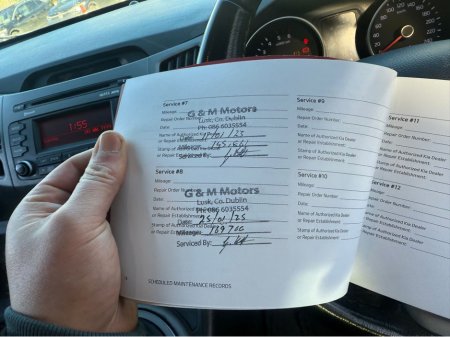 1:55
Service #7
Mileage:
Repair Order Number:
Date:
Name of Authorized Kia Dealer
or Repair Establishment:
Stamp of Authorized Kia Dealer
or Repair Establishment:
G & M Motors
Lusk, Co. Dublin
Ph: 086 6035554
Date:
Mileage:
Serviced By:
Service #8
Mileage:
Repair Order Number:
Date:
Name of Authorized Kia Dealer
or Repair Establishment:
Stamp of Authorized Kia Dealer
or Repair Establishment:
G & M Motors
Lusk, Co. Dublin
Ph: 086 6035554
Date: 25/01/25
Mileage:
Serviced By:
SCHEDULED MAINTENANCE RECORDS
Service #9
Mileage:
Repair Order Number:
Date:
Name of Authorized Kia Dealer
or Repair Establishment:
Stamp of Authorized Kia Dealer
or Repair Establishment:
Service #10
Mileage:
Repair Order Number:
Date:
Name of Authorized Kia Dealer
or Repair Establishment:
Stamp of Authorized Kia Dealer
or Repair Establishment:
Service #11
Mileage:
Repair Order Number:
Date:
Name of Authorized Kia Dealer
or Repair Establishment:
Stamp of Authorized Kia Dealer
or Repair Establishment:
#12
Order Number:
Name of Authorized Kia Dealer
or Repair Establishment:
Stamp of Authorized Kia Dealer
or Repair Establishment: